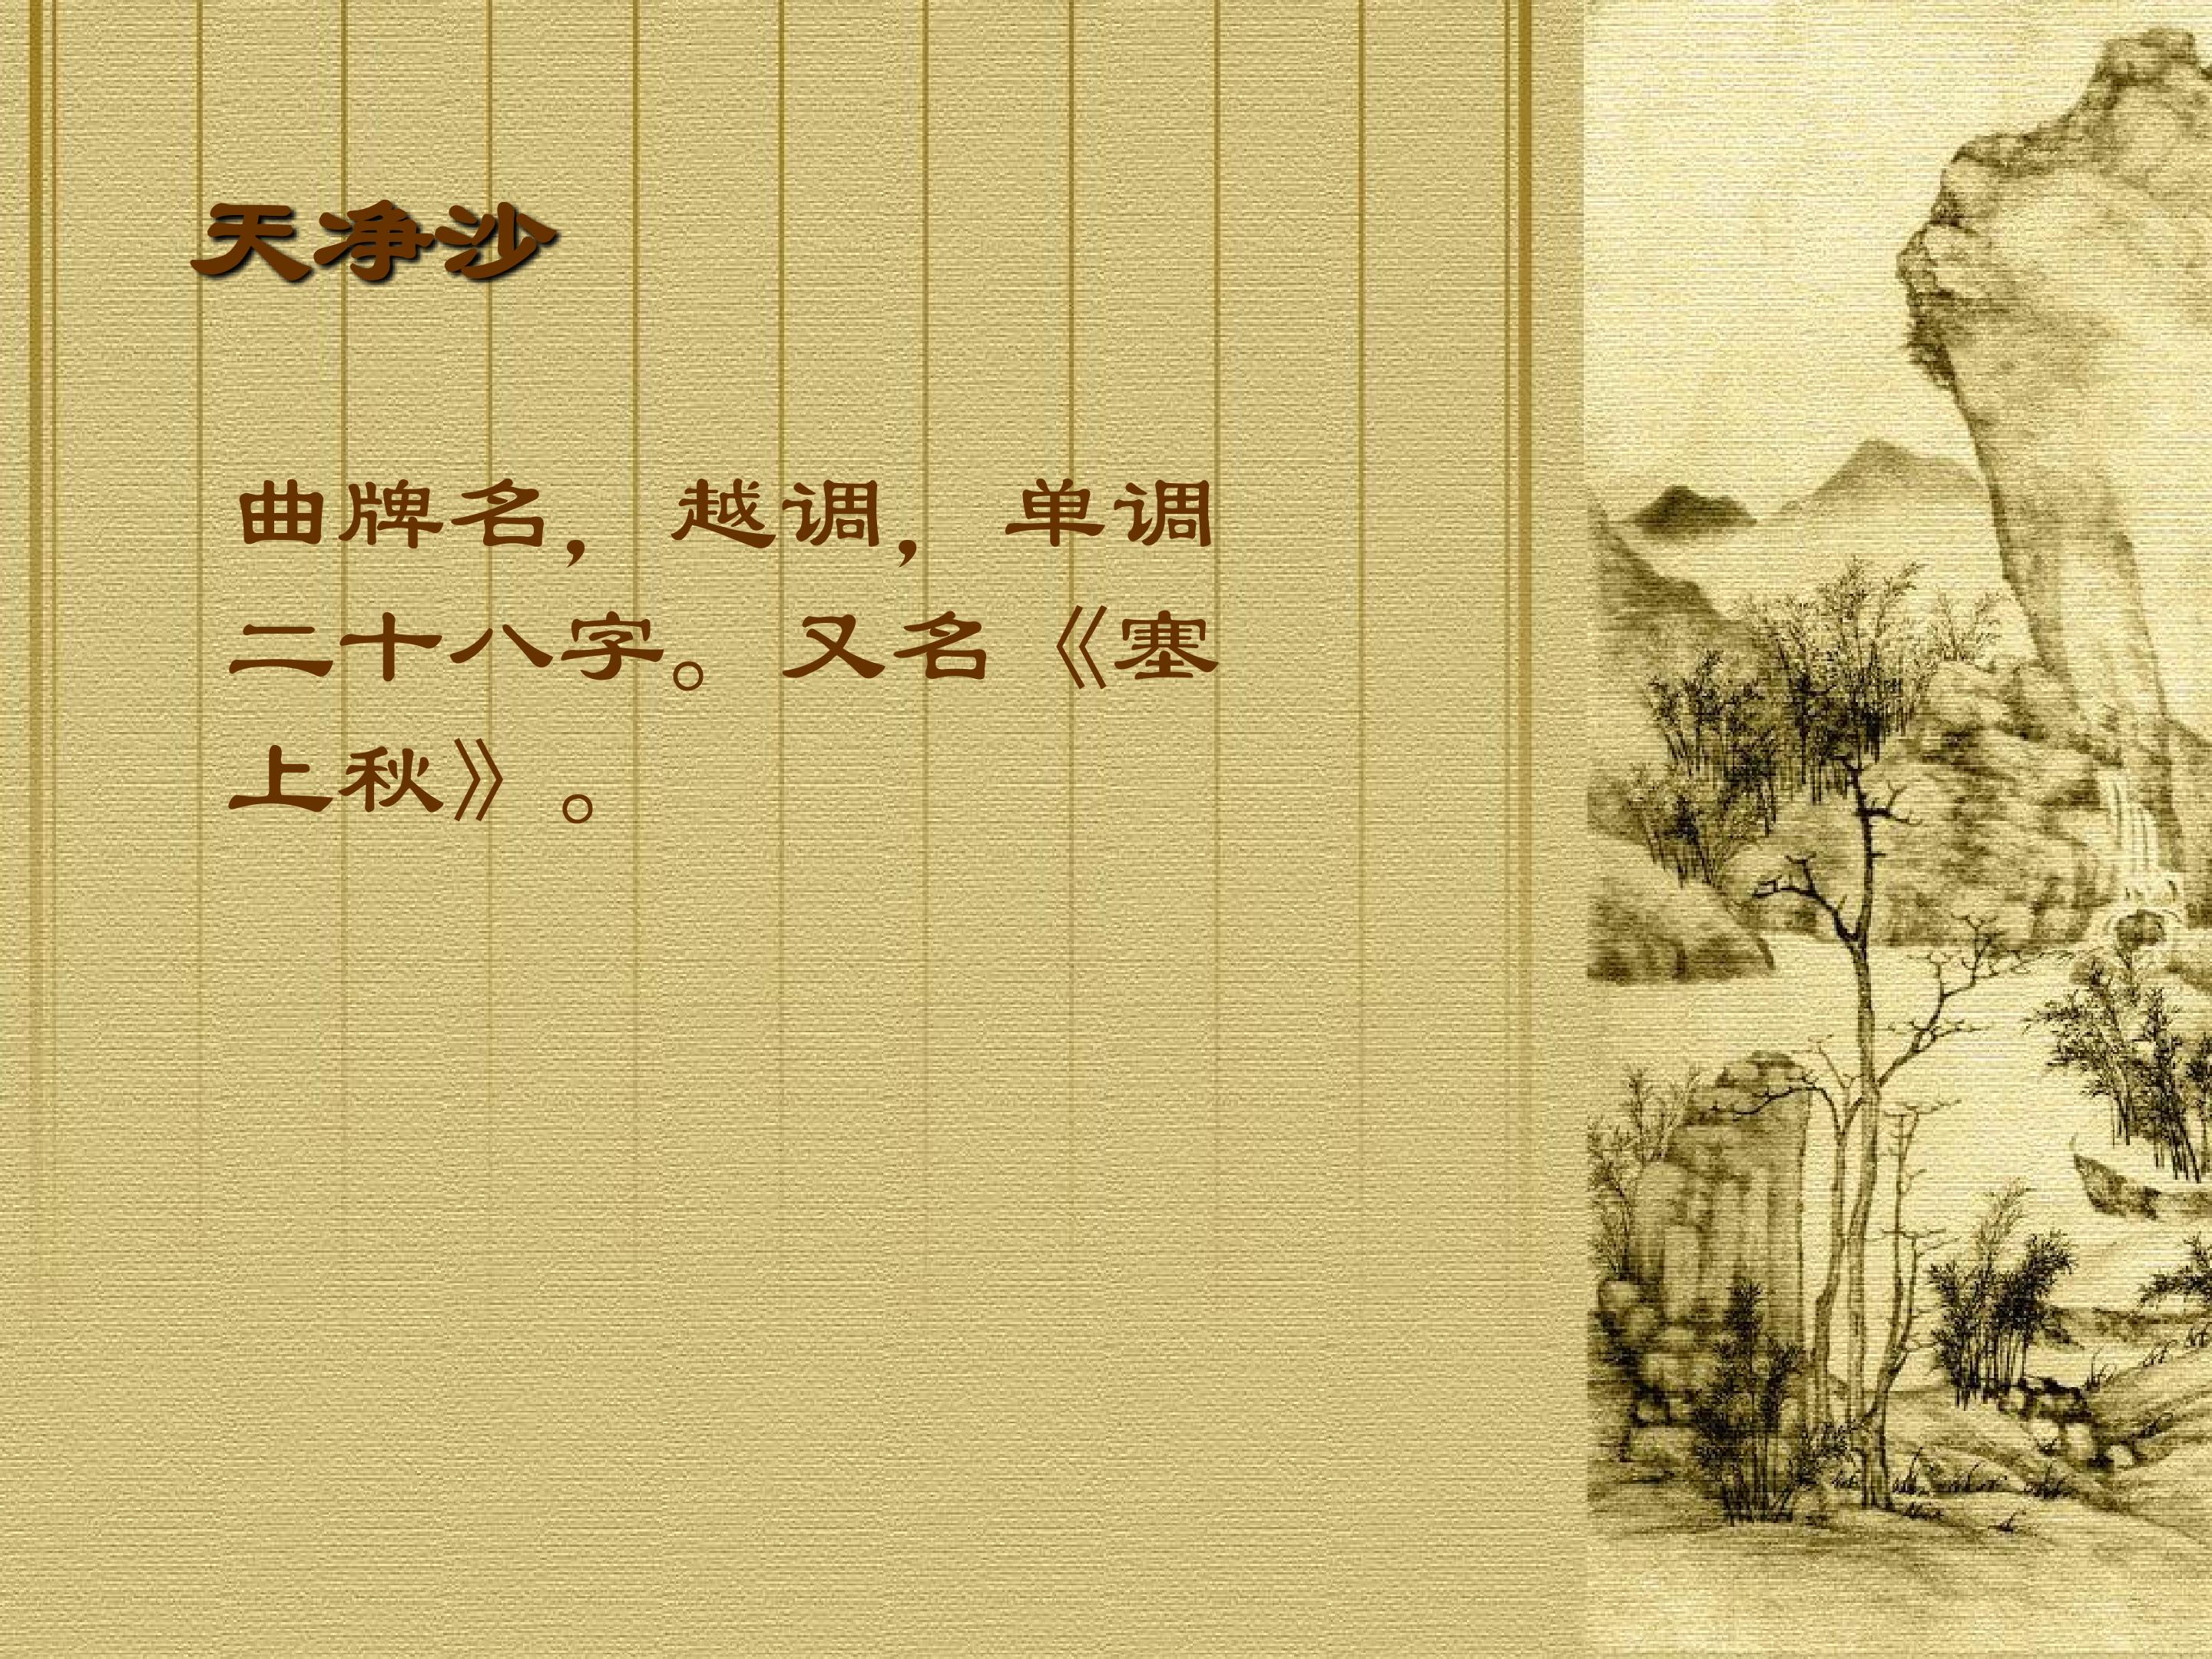 天净沙
曲牌名，越调，单调
二十八字。又名《塞
上秋》。